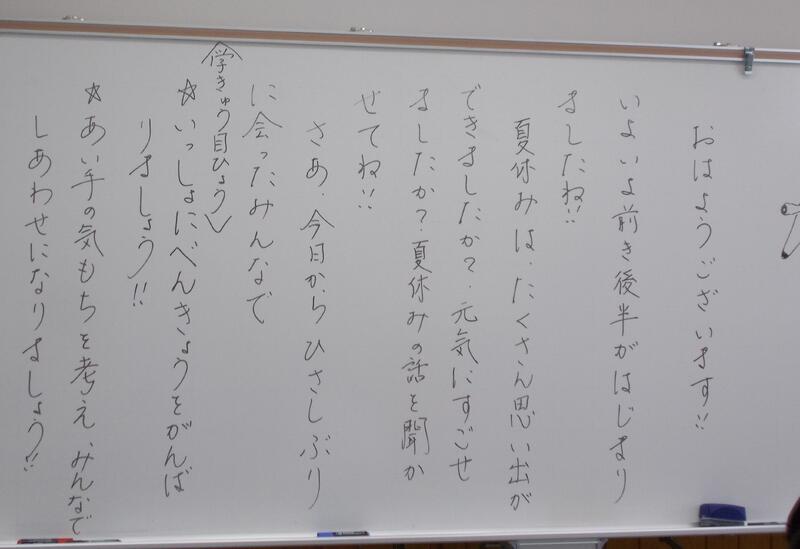 おはようございます!!
いよいよ前き後半がはじまり
ましたね!!
夏休みは、たくさん思い出が
できましたか?、元気にすごせ
ましたか?夏休みの話を聞か
せてね!!
さあ、今日からひさしぶり
に会ったみんなで
学きゅう目ひょう
☆いっしょにべんきょうをがんば
りましょう!!
☆あい手の気もちを考え、みんなで
しあわせになりましょう!!